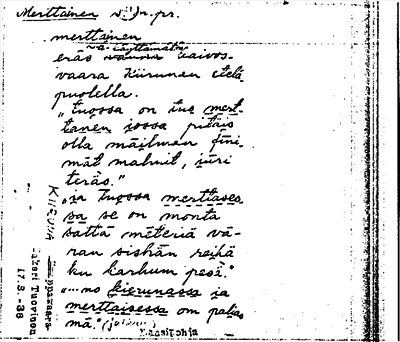 Merttainen v. Jn. pr.
merttainen
va-käyttämätön
eräs kaivos-
vaara Kiirunan etelä
puolella.
"tuossa on tue mert-
tanen jossa pitäis
olla mäilman fini-
mät malmit, iüri
teräs."
"ja tuossa merttases-
sa se on monta
sattä mēteriä vä-
ran sishän reikä
ku karhum pesä."
"... no kierunassa ja
merttaisessa om palja
mā."
KIIRUNA
Jäppävaara
Sakari Tuovinen
17.8.-38
Kansitohja